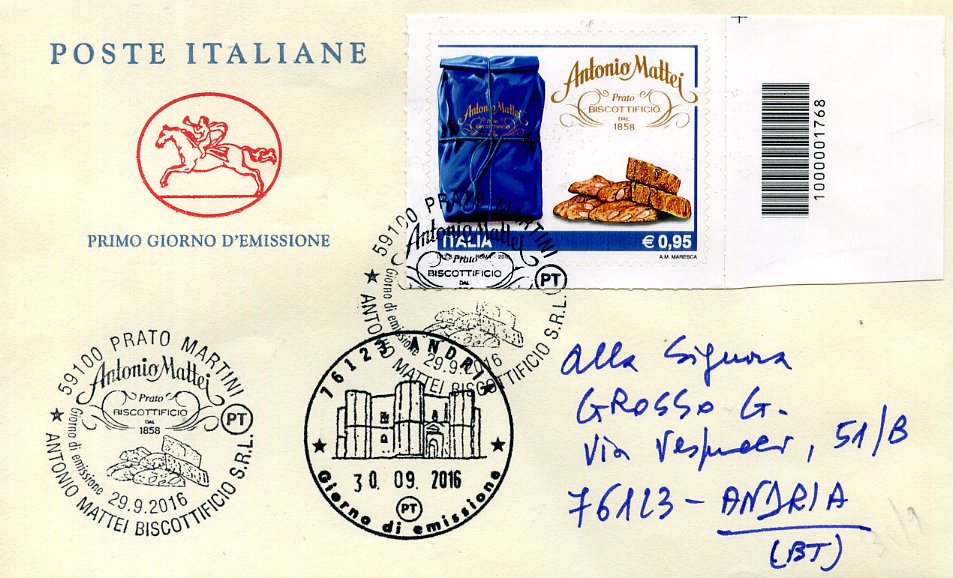 POSTE ITALIANE
PRIMO GIORNO D'EMISSIONE
Antonio Mattei
Prato
BISCOTTIFICIO
DAL
1858
Antonio Mattei
Prato
BISCOTTIFICIO
ITALIA
€ 0,95
A.M. MARESCA
1000001768
59100 PRATO MARTINI
Antonio Mattei
Prato
BISCOTTIFICIO
DAL
PT
Giorno di emissione 29.9.2016
ANTONIO MATTEI BISCOTTIFICIO S.R.L.
59100 PRATO MARTINI
Antonio Mattei
Prato
BISCOTTIFICIO
DAL
1858
PT
Giorno di emissione 29.9.2016
ANTONIO MATTEI BISCOTTIFICIO S.R.L.
76123 ANDRIA
30. 09. 2016
PT
Giorno di emissione
Alla Signora
GROSSO G.
Via Vespucci, 51/B
76123 - ANDRIA
(BT)